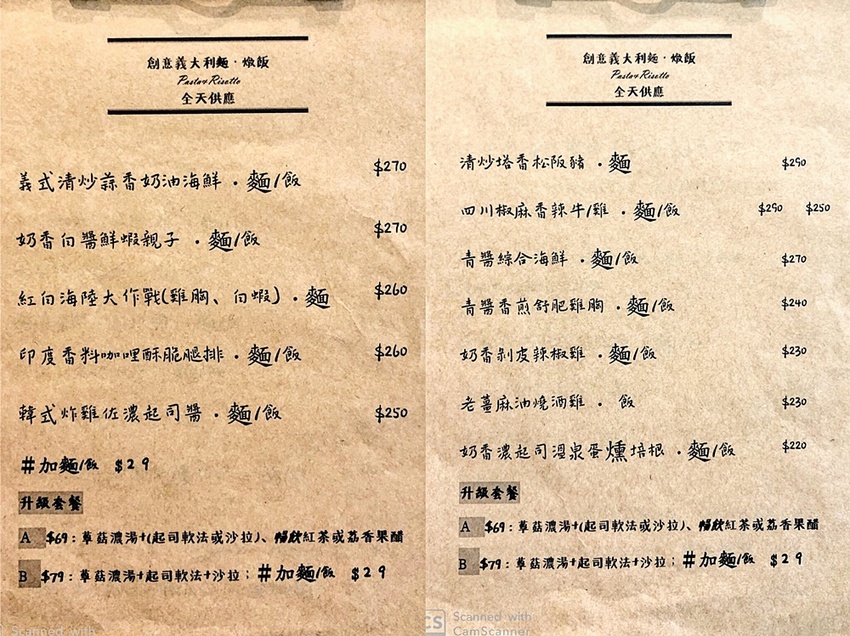 創意義大利麵·燉飯
Pasta & Risotto
全天供應
義式清炒蒜香奶油海鮮·麵/飯 $270
奶香白醬鮮蝦親子·麵/飯 $270
紅白海陸大作戰(雞胸、白蝦)·麵 $260
印度香料咖哩酥脆腿排·麵/飯 $260
韓式炸雞佐濃起司醬·麵/飯 $250
#加麵/飯 $29
升級套餐
A $69：蕈菇濃湯+(起司軟法或沙拉)、暢飲紅茶或荔香果醋
B $79：蕈菇濃湯+起司軟法+沙拉；#加麵/飯 $29
Scanned with
創意義大利麵·燉飯
Pasta & Risotto
全天供應
清炒塔香松阪豬·麵 $290
四川椒麻香辣牛/雞·麵/飯 $290 $250
青醬綜合海鮮·麵/飯 $270
青醬香煎舒肥雞胸·麵/飯 $240
奶香剝皮辣椒雞·麵/飯 $230
老薑麻油燒酒雞·飯 $230
奶香濃起司溫泉蛋燻培根·麵/飯 $220
升級套餐
A $69：蕈菇濃湯+(起司軟法或沙拉)、暢飲紅茶或荔香果醋
B $79：蕈菇濃湯+起司軟法+沙拉；#加麵/飯 $29
CS Scanned with
CamScanner